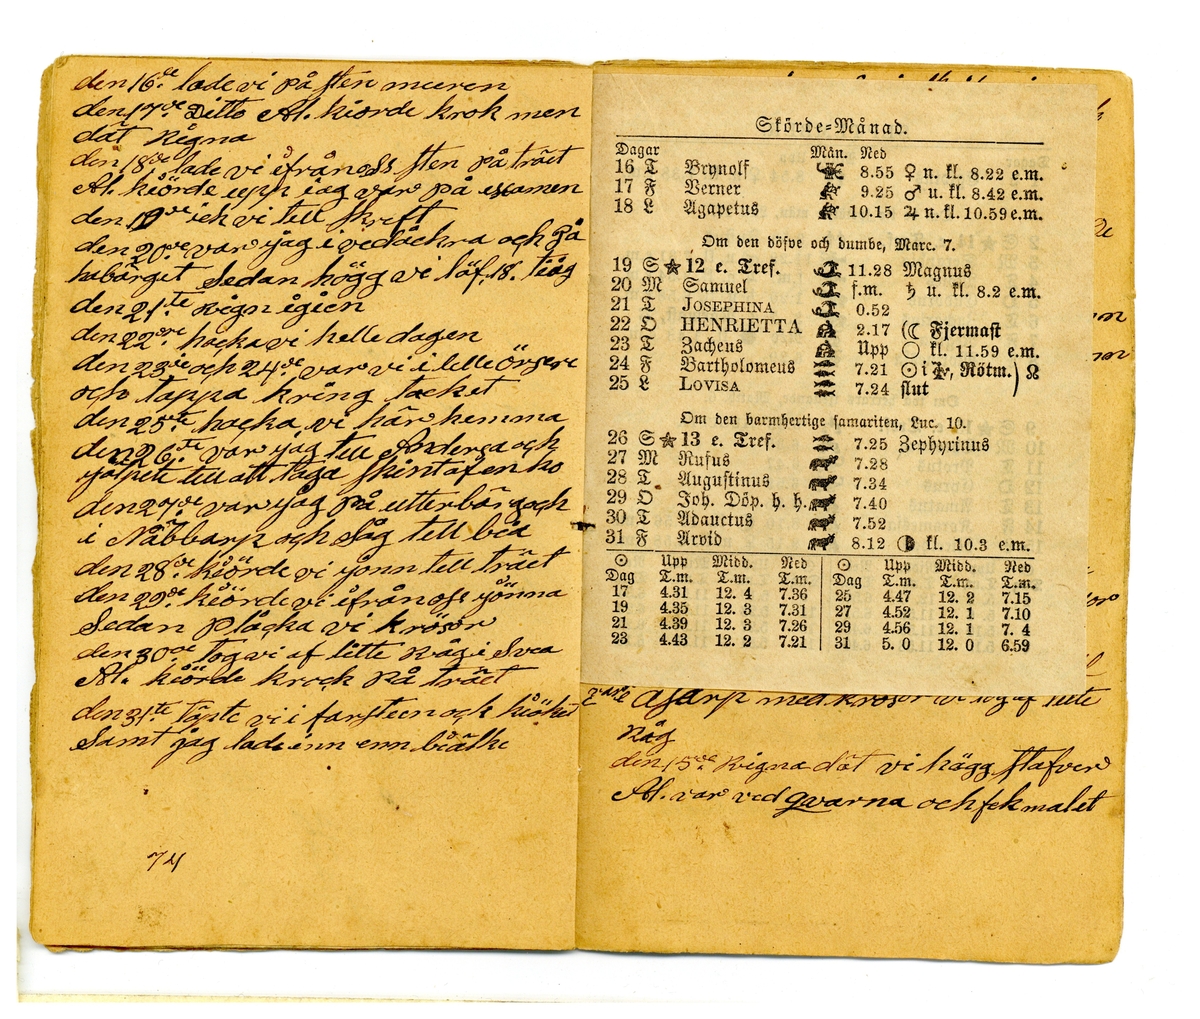 den 16de lade vi på sten meuren
den 17de Ditto Al. kiorde krok men
dät Rigna
den 18de lade vi ifrån oss sten på träet
Al. kiörde upp iag var på examen
den 19de ick vi tell skrift
den 20de var jag i vedåckra och på
habärget Sedan högg vi löf, 18. tiög
den 21te rign igien
den 22dre hacka vi helle dagen
den 23die och 24de var vi i lelle örsere
och tappa kring tacket
den 25te hacka vi här hemma
den 26te var jag tell Andersa och
jälpte tell att taga skintafen ko
den 27de var jag på utterbärg och
i Näbbarp och Såg tell bia
den 28de kiörde vi jonn tell träet
den 29de kiörde vi ifrån oss jönna
Sedan placka vi krösor
den 30de tog vi af litte råg i Svea
Al. kiörde krock på träet
den 31te täpte vi i farsteen ock kiöket
Samt jag lade inn enn biälke
74
Skörde-Månad.
Dagar Mån. Ned
16 T Brynolf 8.55 ♀ n. kl. 8.22 e.m.
17 F Verner 9.25 ♂ u. kl. 8.42 e.m.
18 L Agapetus 10.15 ♃ n. kl. 10.59 e.m.
Om den döfve och dumbe, Marc. 7.
19 S ★ 12 e. Tref. 11.28 Magnus
20 M Samuel f.m. ♄ u. kl. 8.2 e.m.
21 T JOSEPHINA 0.52
22 O HENRIETTA 2.17 (☾ Fjermast
23 T Zacheus Upp ○ kl. 11.59 e.m.
24 F Bartholomeus 7.21 ☉ i ♍, Rötm.) ☊
25 L LOVISA 7.24 slut
Om den barmhertige samariten, Luc. 10.
26 S ★ 13 e. Tref. 7.25 Zephyrinus
27 M Rufus 7.28
28 T Augustinus 7.34
29 O Joh. Döp. h. h. 7.40
30 T Adauctus 7.52
31 F Arvid 8.12 ◑ kl. 10.3 e.m.
☉ Upp Midd. Ned ☉ Upp Midd. Ned
Dag T.m. T.m. T.m. Dag T.m. T.m. T.m.
17 4.31 12. 4 7.36 25 4.47 12. 2 7.15
19 4.35 12. 3 7.31 27 4.52 12. 1 7.10
21 4.39 12. 3 7.26 29 4.56 12. 1 7. 4
23 4.43 12. 2 7.21 31 5. 0 12. 0 6.59
Asarp med krösor vi tog af litte
Råg
den 15de Rigna dät vi hägg stafver
Al. var ved qvarna och fek malet